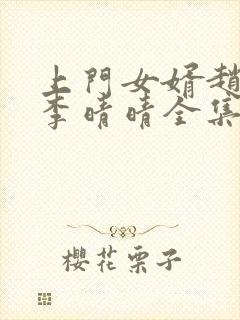 上門女婿趙
李晴晴全集
櫻花栗子